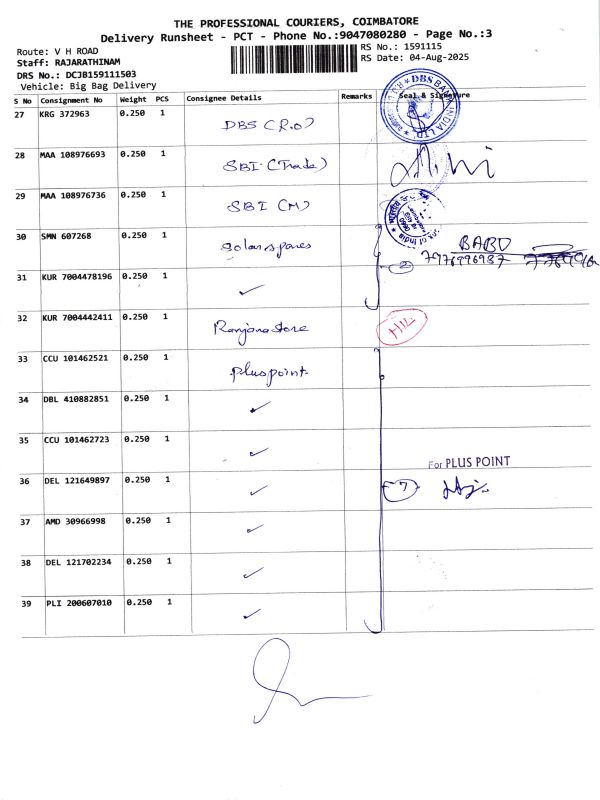 THE PROFESSIONAL COURIERS, COIMBATORE
Delivery Runsheet - PCT - Phone No.:9047080280 - Page No.:3
Route: V H ROAD
RS No.: 1591115
Staff: RAJARATHINAM
RS Date: 04-Aug-2025
DRS No.: DCJB159111503
Vehicle: Big Bag Delivery
S No Consignment No Weight PCS Consignee Details Remarks Seal & Signature
27 KRG 372963 0.250 1 DBS (R.O)
DBS BANK INDIA LTD
28 MAA 108976693 0.250 1 SBI (Trade)
29 MAA 108976736 0.250 1 SBI (M)
30 SMN 607268 0.250 1 Solar spares
BABU
7976996987
2
31 KUR 7004478196 0.250 1 ✓
32 KUR 7004442411 0.250 1 Ranjana Store
33 CCU 101462521 0.250 1 Plus point
34 DBL 410882851 0.250 1 ✓
35 CCU 101462723 0.250 1 ✓
For PLUS POINT
36 DEL 121649897 0.250 1 ✓ 7
37 AMD 30966998 0.250 1 ✓
38 DEL 121702234 0.250 1 ✓
39 PLI 200607010 0.250 1 ✓